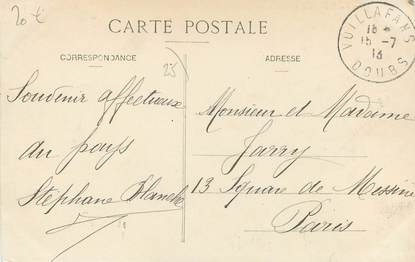 20 €
CARTE POSTALE
CORRESPONDANCE
ADRESSE
VUILLAFANS
15-7
13
DOUBS
25
Souvenir affectueux
du pays
Stéphane Blanche
Monsieur et Madame
Jarry
13 Square de Messine
Paris